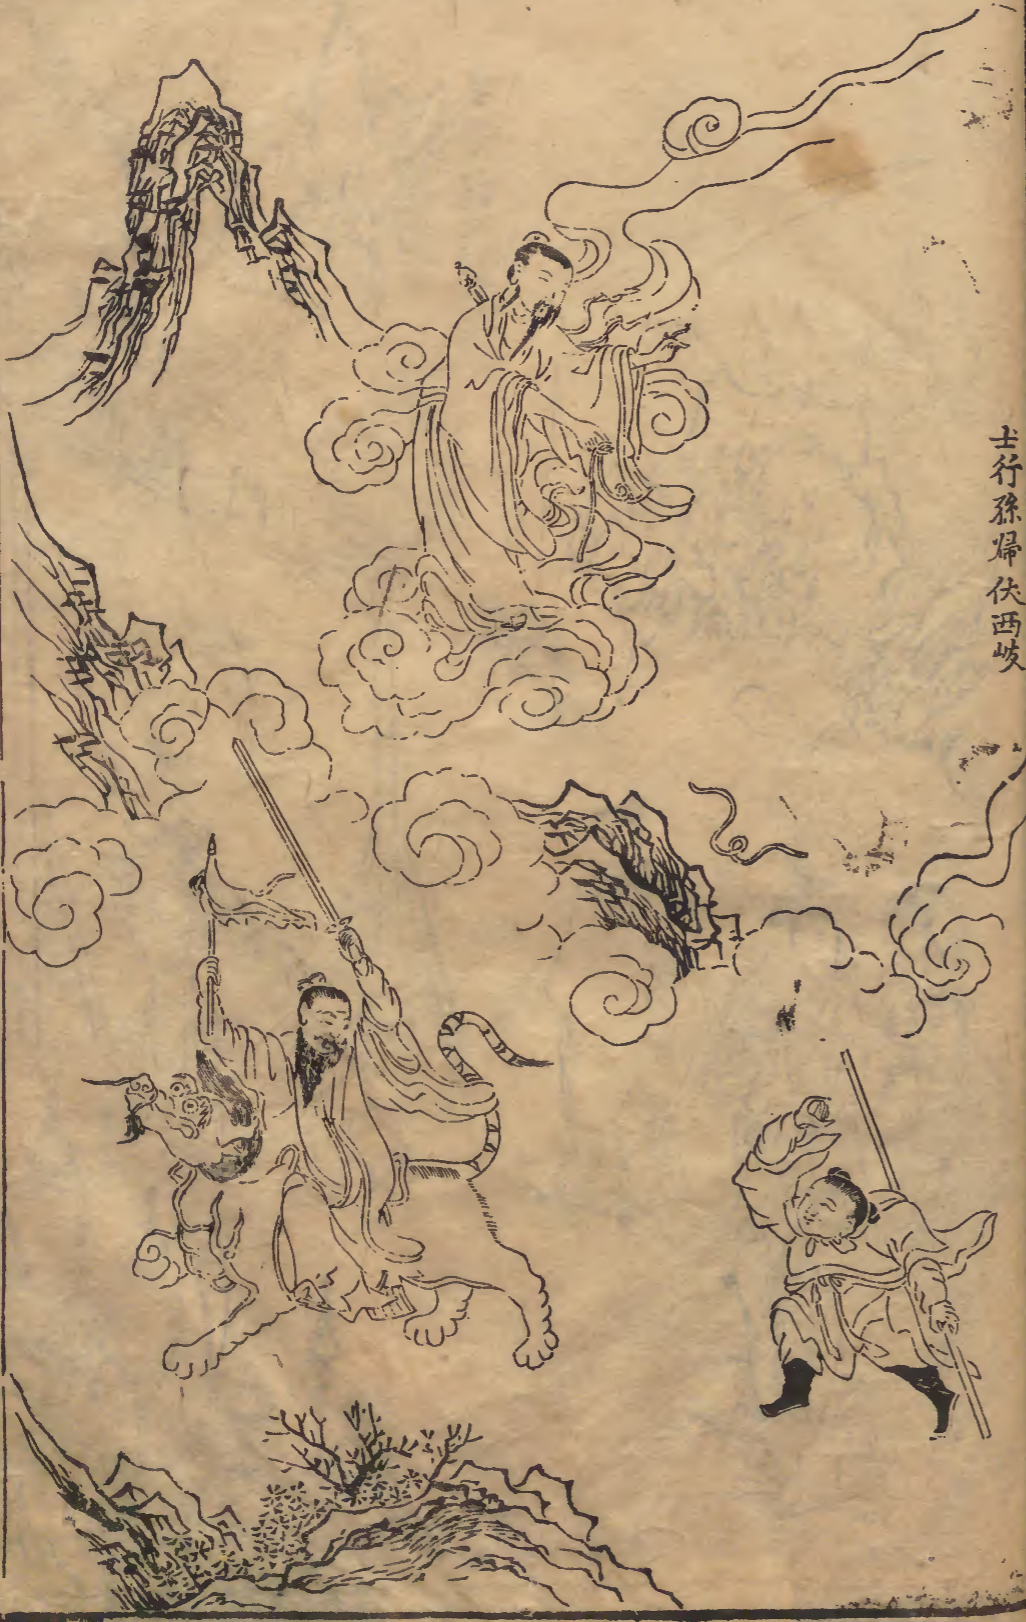 士行孫歸伏西岐